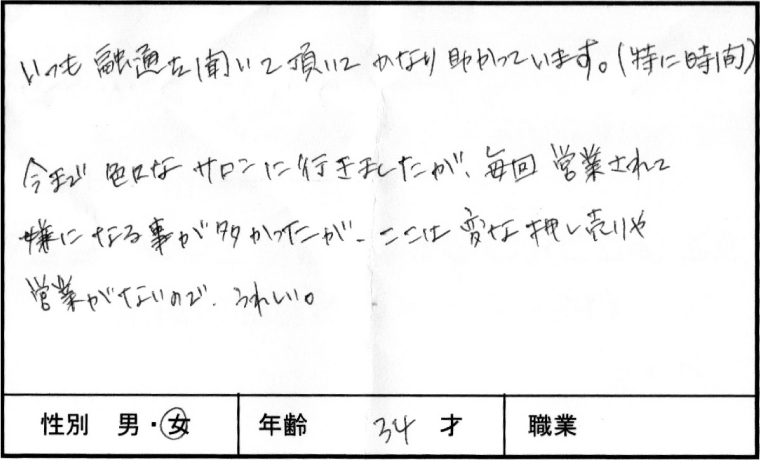 いつも融通を聞いて頂いてかなり助かっています。(特に時間)
今まで色々なサロンに行きましたが、毎回営業されて
嫌になる事が多かったが、ここは変な押し売りや
営業がないので、うれしい。
性別 男・女 年齢 34 才 職業